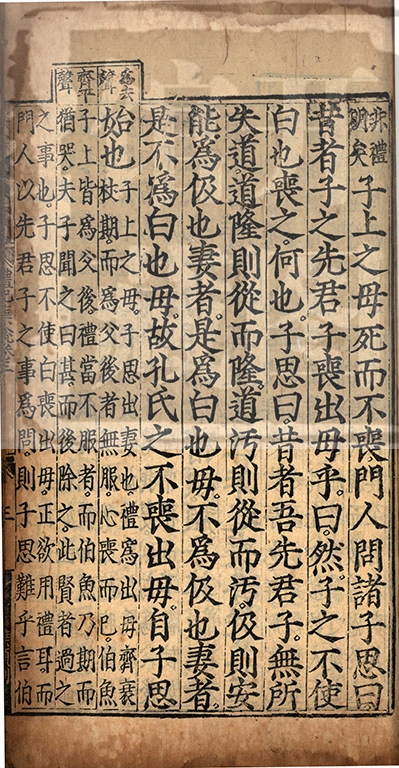 為去
聲
齊平
聲
非禮
明矣
子上之母死而不喪門人問諸子思曰
昔者子之先君子喪出母乎曰然子之不使
白也喪之何也子思曰昔者吾先君子無所
失道道隆則從而隆道污則從而污伋則安
能爲伋也妻者是爲白也母不爲伋也妻者
是不爲白也母故孔氏之不喪出母自子思
始也
子上之母子思出妻也禮爲出母齊衰
杖期而爲父後者無服心喪而已伯魚
子上皆爲父後禮當不服者而伯魚乃期而
猶哭夫子聞之曰甚而後除之此賢者過之
之事也子思不使白喪出母正欲用禮耳而
門人以先君子之事爲問則子思難乎言伯